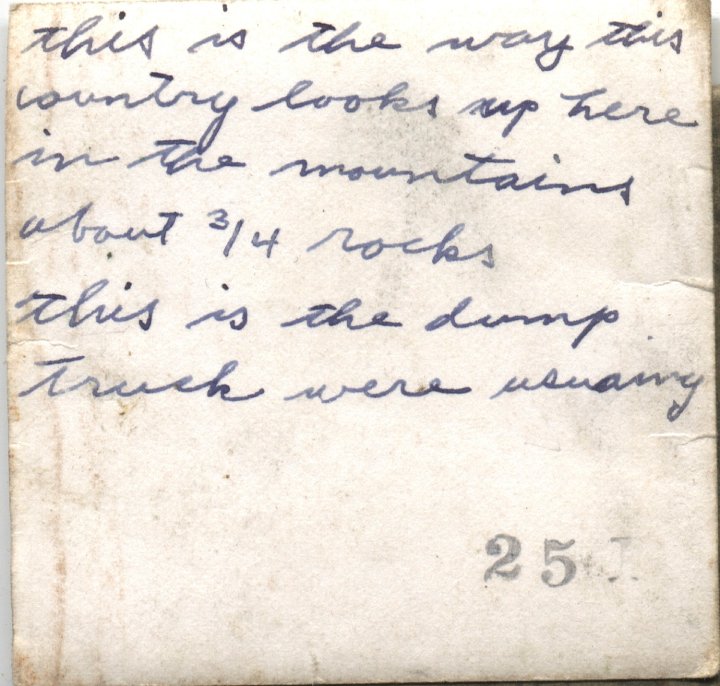 this is the way this
country looks up here
in the mountains
about 3/4 rocks
this is the dump
truck were usuaing
25